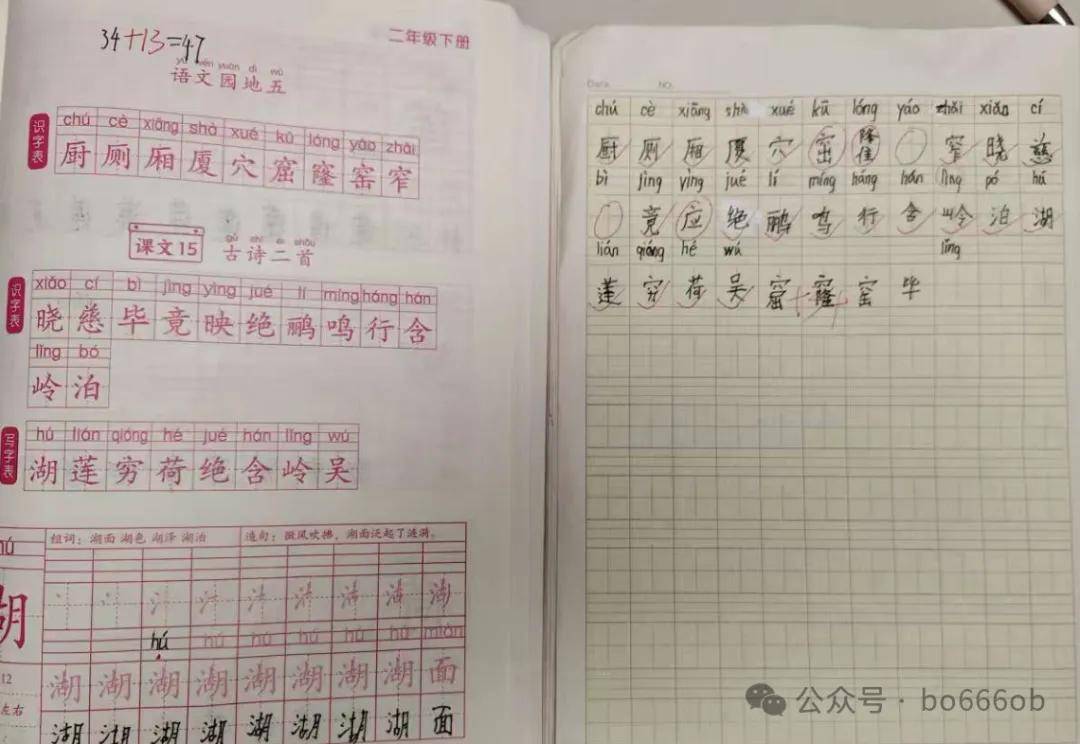 34+13=47
二年级下册
语文园地五
识字表
chú cè xiāng shà xué kū lóng yáo zhǎi
厨 厕 厢 厦 穴 窟 窿 窑 窄
课文15
gǔ shī èr shǒu
古诗二首
识字表
xiǎo cí bì jìng yìng jué lí míng háng hán
晓 慈 毕 竟 映 绝 鹂 鸣 行 含
lǐng bó
岭 泊
写字表
hú lián qióng hé jué hán lǐng wú
湖 莲 穷 荷 绝 含 岭 吴
hú
湖
组词:湖面 湖色 湖泽 湖泊
造句:微风吹拂,湖面泛起了涟漪。
hú hú hú hú hú hú miàn
湖 湖 湖 湖 湖 湖 湖 湖 面
12
左右
湖 湖 湖 湖 湖 湖 湖 湖 面
Date. NO.
chú cè xiāng shà xué kū lóng yáo zhǎi xiǎo cí
厨 厕 厢 厦 穴 窟 窿 窄 晓 慈
bì jìng yìng jué lí míng háng hán lǐng pó hú
竟 应 绝 鹂 鸣 行 含 岭 泊 湖
lián qióng hé wú lǐng
莲 穷 荷 吴 窟 窿 窑 毕
公众号·bo666ob